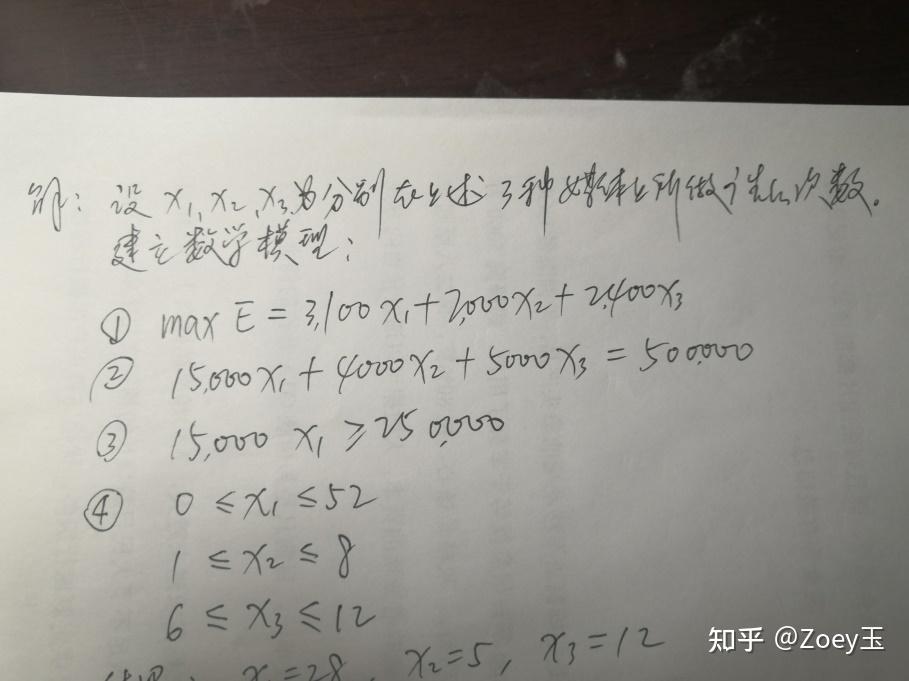 解：设 x₁, x₂, x₃为分别在上述3种媒体上所做广告的次数.
建立数学模型：
① max E = 3,100x₁+2,000x₂+2,400x₃
② 15,000x₁ + 4000x₂ + 5000x₃ = 500,000
③ 15,000 x₁ ≥ 250,000
④ 0 ≤ x₁ ≤ 52
1 ≤ x₂ ≤ 8
6 ≤ x₃ ≤ 12
x₁=28, x₂=5, x₃=12
知乎 @Zoey玉